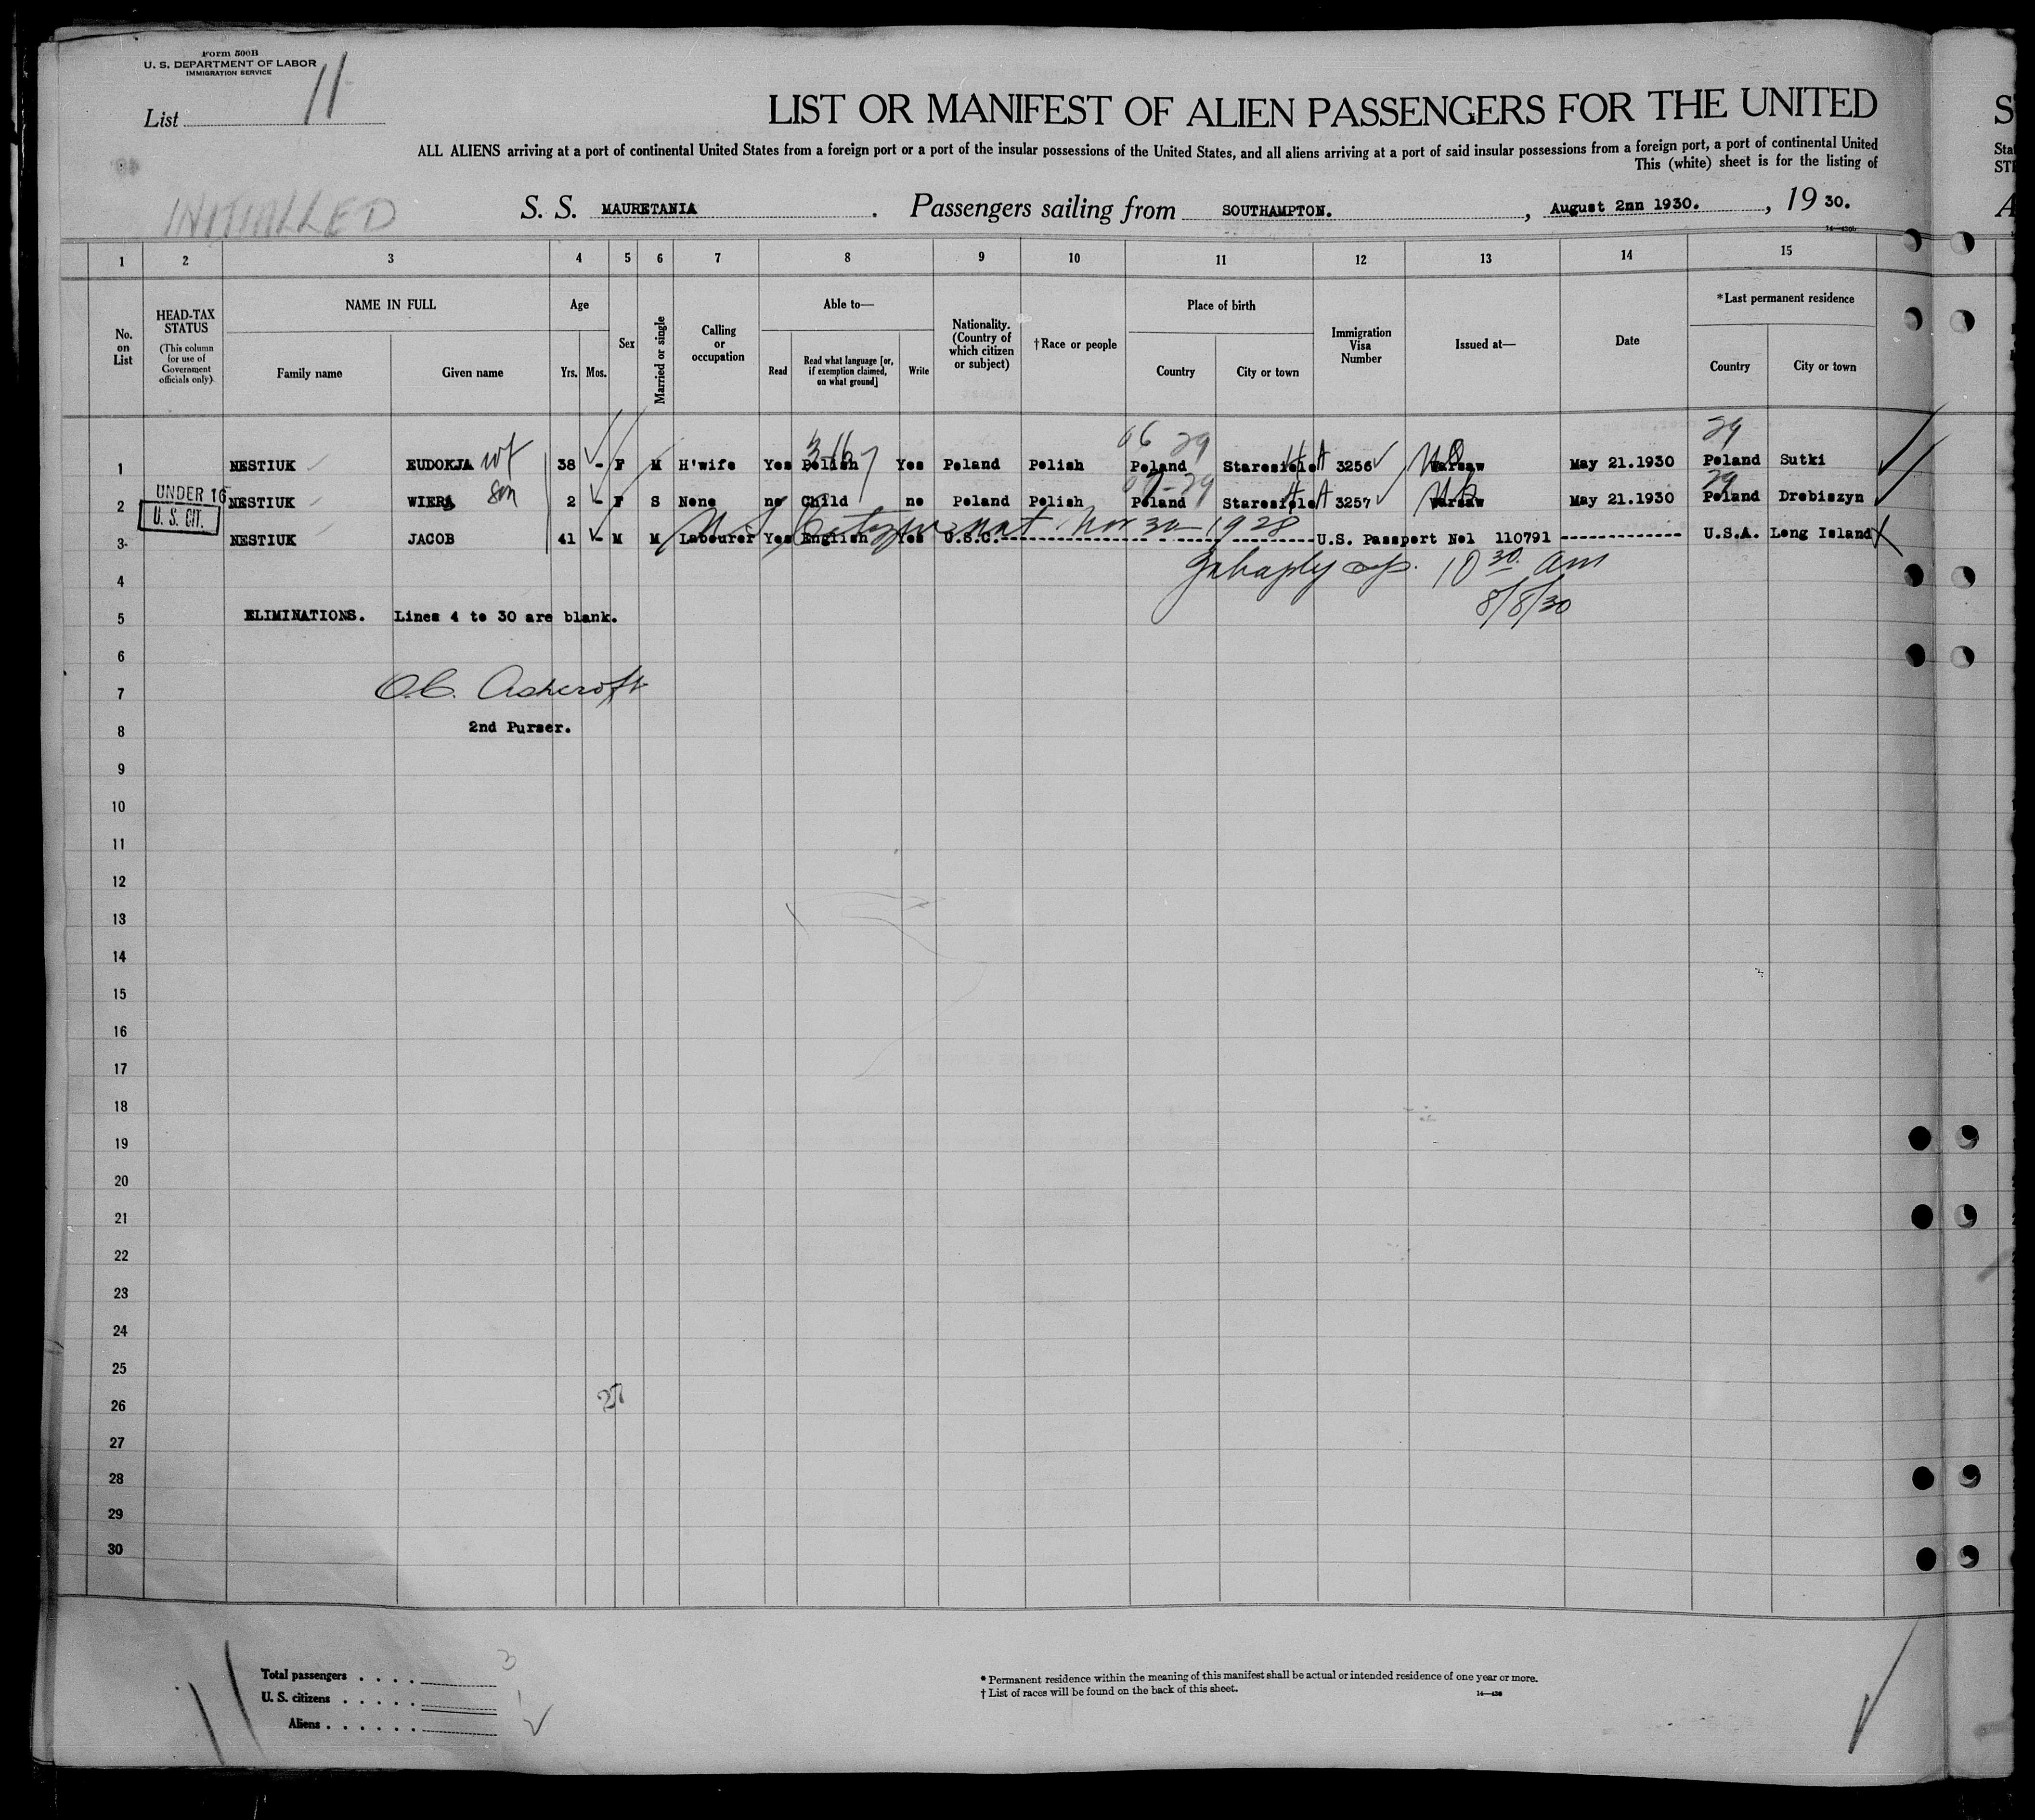 Form 500B
U. S. DEPARTMENT OF LABOR
IMMIGRATION SERVICE
List 11
LIST OR MANIFEST OF ALIEN PASSENGERS FOR THE UNITED
ALL ALIENS arriving at a port of continental United States from a foreign port or a port of the insular possessions of the United States, and all aliens arriving at a port of said insular possessions from a foreign port, a port of continental United
This (white) sheet is for the listing of
INITIALLED
S. S. MAURETANIA . Passengers sailing from SOUTHAMPTON. , August 2nn 1930. , 19 30.
1 2 3 4 5 6 7 8 9 10 11 12 13 14 15
No. on List
HEAD-TAX STATUS (This column for use of Government officials only)
NAME IN FULL
Family name Given name
Age
Yrs. Mos.
Sex
Married or single
Calling or occupation
Able to—
Read Read what language [or, if exemption claimed, on what ground] Write
Nationality. (Country of which citizen or subject)
†Race or people
Place of birth
Country City or town
Immigration Visa Number
Issued at—
Date
*Last permanent residence
Country City or town
06 29 29
1 NESTIUK EUDOKJA wf 38 - F M H'wife Yes Polish Yes Poland Polish Poland Staresiole 3256 Warsaw May 21.1930 Poland Sutki
UNDER 16
U. S. CIT.
2 NESTIUK WIERA son 2 - F S None no Child no Poland Polish Poland Staresiole 3257 Warsaw May 21.1930 Poland Drebiszyn
U.S. Citizen nat Nov 30 1928
3 NESTIUK JACOB 41 - M M Labourer Yes English Yes U.S.C. U.S. Passport Nol 110791 U.S.A. Long Island
4
10 30 am
8/8/30
5 ELIMINATIONS. Lines 4 to 30 are blank.
6
7 O.C. Ashcroft
8 2nd Purser.
9
10
11
12
13
14
15
16
17
18
19
20
21
22
23
24
25
26
27
28
29
30
Total passengers . . . . 3
U. S. citizens . . . . . 1
Aliens . . . . . .
* Permanent residence within the meaning of this manifest shall be actual or intended residence of one year or more.
† List of races will be found on the back of this sheet.
14—436